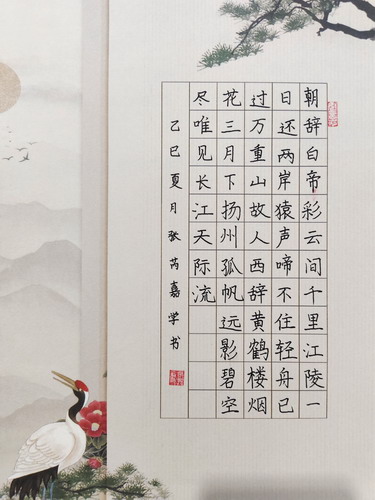 朝辞白帝彩云间千里江陵一
日还两岸猿声啼不住轻舟已
过万重山故人西辞黄鹤楼烟
花三月下扬州孤帆远影碧空
尽唯见长江天际流
乙巳夏月张芮嘉学书